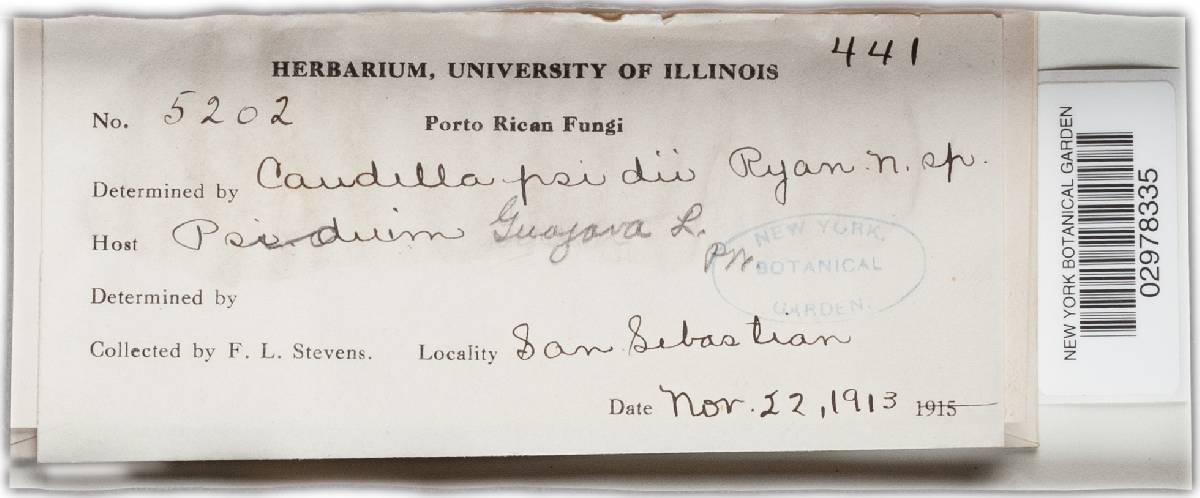 441
HERBARIUM, UNIVERSITY OF ILLINOIS
No. 5202 Porto Rican Fungi
Determined by Caudella psidii Ryan. n. sp.
Host Psidium Guajava L.
P.W.
NEW YORK
BOTANICAL
GARDEN.
Determined by
Collected by F. L. Stevens. Locality San Sebastian
Date Nov. 22, 1913 1915
NEW YORK BOTANICAL GARDEN
02978335